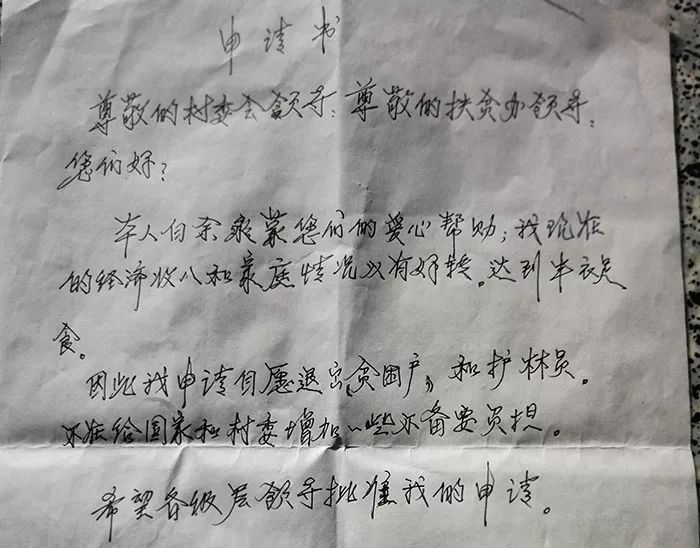 申请书
尊敬的村委会领导：尊敬的扶贫办领导：
您们好？
本人白余承蒙您们的爱心帮助；我现在
的经济收入和家庭情况以有好转。达到半衣足
食。
因此我申请自愿退出《贫困户》和护林员。
不在给国家和村委增加一些不备要负担。
希望各级层领导批准我的申请。